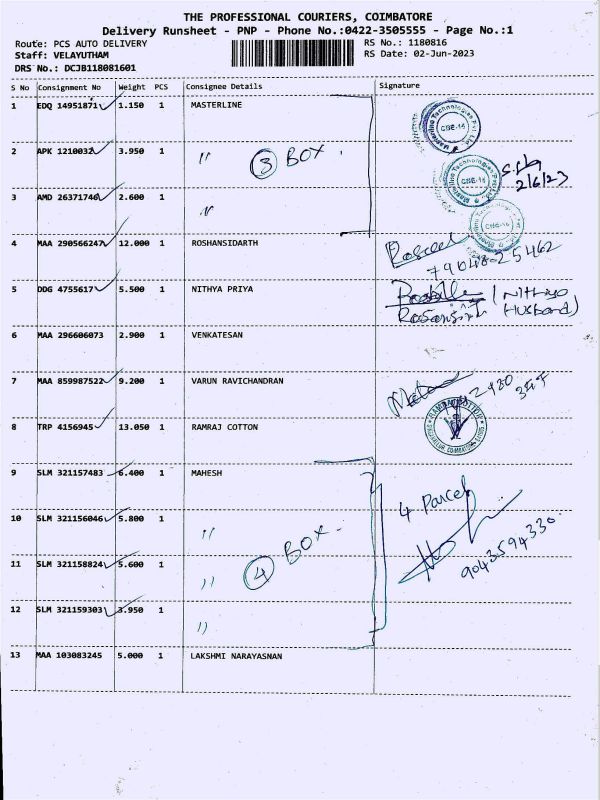 THE PROFESSIONAL COURIERS, COIMBATORE
Delivery Runsheet - PNP - Phone No.:0422-3505555 - Page No.:1
Route: PCS AUTO DELIVERY RS No.: 1180816
Staff: VELAYUTHAM RS Date: 02-Jun-2023
DRS No.: DCJB118081601
S No Consignment No Weight PCS Consignee Details Signature
1 EDQ 14951871 1.150 1 MASTERLINE
CBE-14
2 APK 1210032 3.950 1 〃 3 BOX
CBE-14
2/6/23
3 AMD 26371746 2.600 1 〃
4 MAA 290566247 12.000 1 ROSHANSIDARTH
79048-25462
5 DDG 4755617 5.500 1 NITHYA PRIYA (Nithiya
Husband)
6 MAA 296606073 2.900 1 VENKATESAN
7 MAA 859987522 9.200 1 VARUN RAVICHANDRAN
8 TRP 4156945 13.050 1 RAMRAJ COTTON
RAMRAJ COTTON
9 SLM 321157483 6.400 1 MAHESH
4 Parcel
10 SLM 321156046 5.800 1 〃
4 BOX
11 SLM 321158824 5.600 1 〃
9043594330
12 SLM 321159303 3.950 1 〃
13 MAA 103083245 5.000 1 LAKSHMI NARAYASNAN